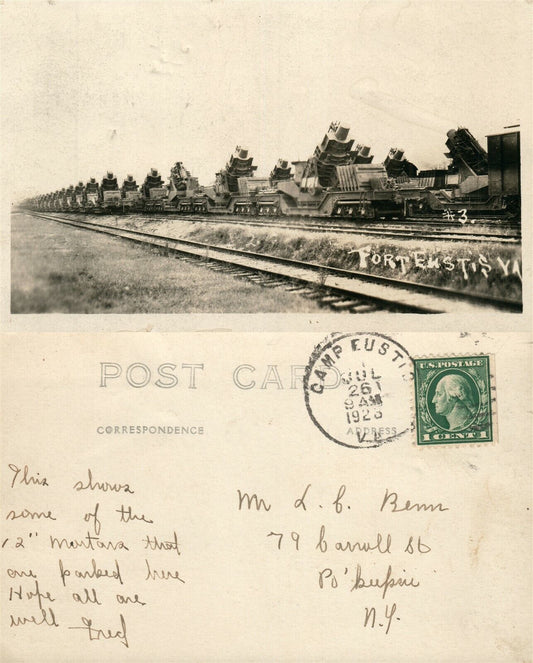 #3.
FORT EUSTIS VA
POST CARD
CAMP EUSTIS
JUL
26
9 AM
1923
VA.
U.S. POSTAGE
1 CENT 1
CORRESPONDENCE
ADDRESS
This shows
some of the
12" mortars that
are parked here
Hope all are
well
Fred
Mr L. C. Benn
79 Carroll St
Po'keepsie
N.Y.